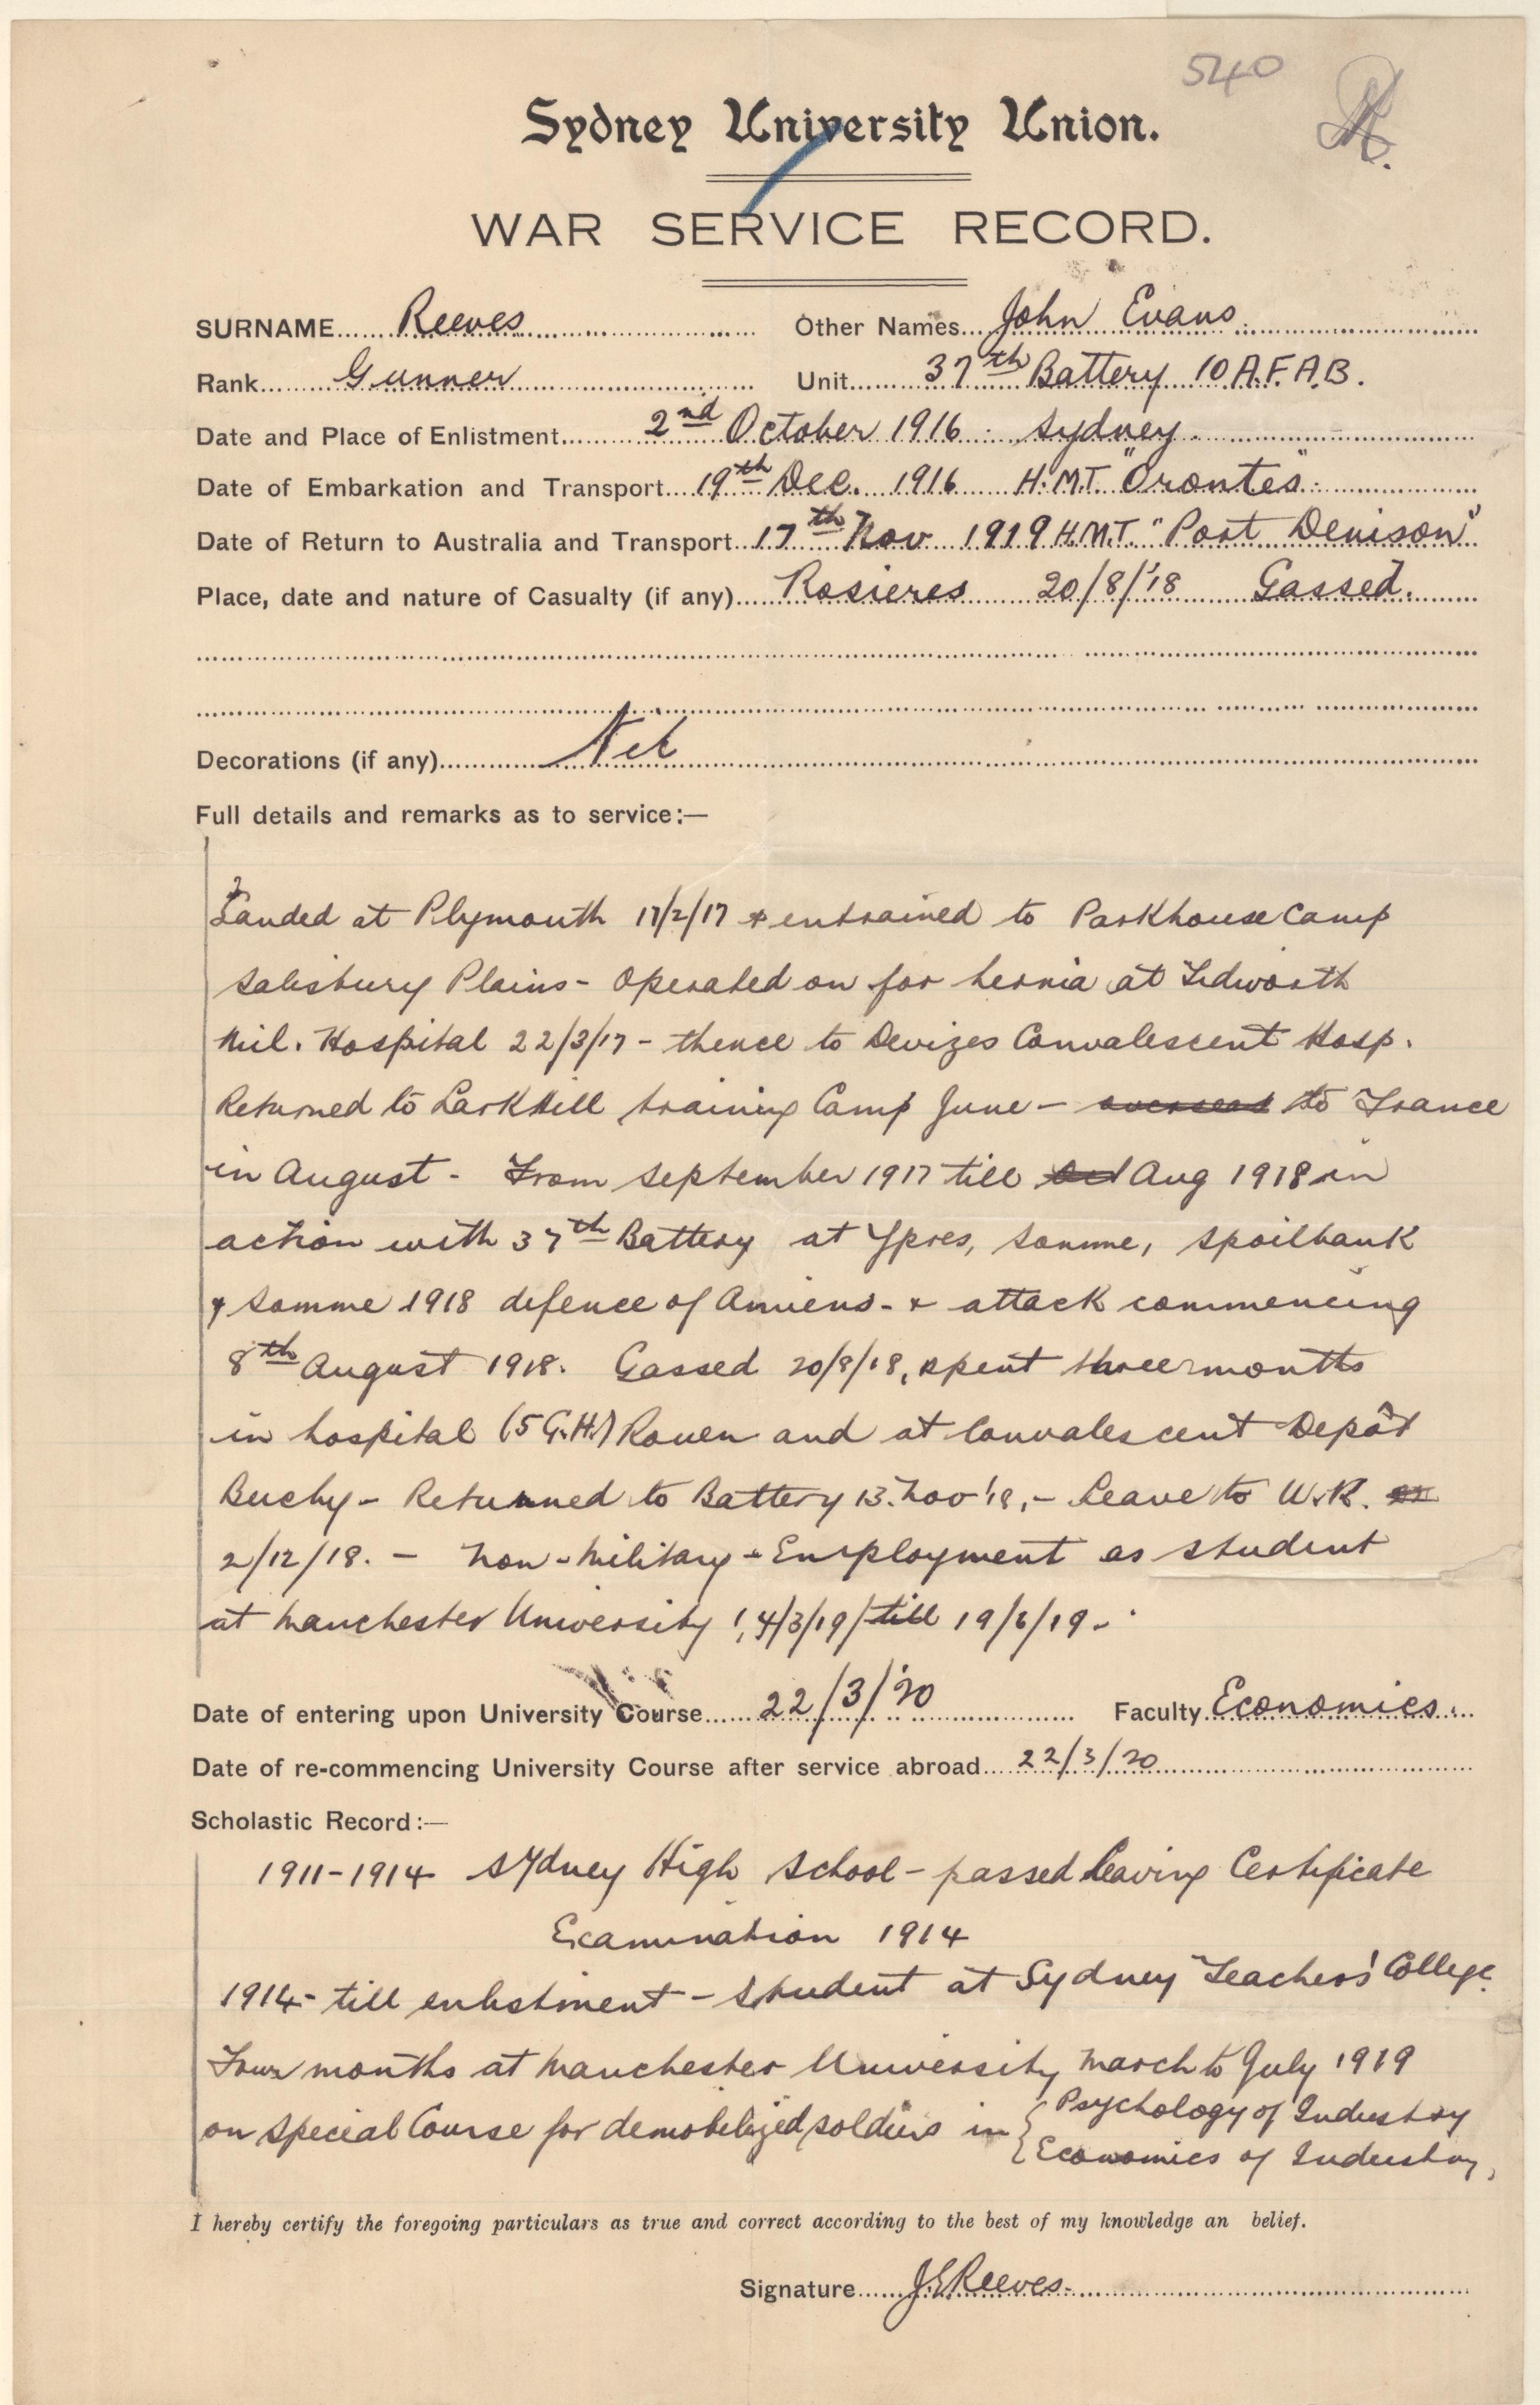 540
Sydney University Union.
WAR SERVICE RECORD.
SURNAME...... Reeves ............ Other Names.... John Evans ............
Rank......... Gunner ............ Unit....... 37th Battery 10 A.F.A.B.
Date and Place of Enlistment......... 2nd October 1916 . Sydney. ............
Date of Embarkation and Transport.... 19th Dec. 1916 H.M.T. "Orontes". ............
Date of Return to Australia and Transport.. 17th Nov 1919 H.M.T. "Port Denison"
Place, date and nature of Casualty (if any)..... Rosieres 20/8/'18 Gassed. ......
Decorations (if any)............ Nil ............
Full details and remarks as to service:—
Landed at Plymouth 17/2/17 & entrained to Parkhouse Camp
Salisbury Plains - Operated on for hernia at Tidworth
Mil. Hospital 22/3/17 - thence to Devizes Convalescent Hosp.
Returned to LarkHill training Camp June - overseas to France
in August - From September 1917 till Oct Aug 1918 in
action with 37th Battery at Ypres, Somme, Spoilbank
& Somme 1918 defence of Amiens - & attack commencing
8th August 1918. Gassed 20/8/18, spent three months
in hospital (5 G.H.) Rouen and at Convalescent Depôt
Buchy - Returned to Battery 13. Nov '18, - Leave to U.K. on
2/12/18. - Non-Military - Employment as student
at Manchester University 14/3/19 till 19/6/19 -
Date of entering upon University Course...... 22/3/'20 ............ Faculty Economics. ...
Date of re-commencing University Course after service abroad.... 22/3/20 ............
Scholastic Record:—
1911-1914 Sydney High School - passed Leaving Certificate
Examination 1914
1914 - till enlistment - Student at Sydney Teachers' College.
Four months at Manchester University March to July 1919
on Special Course for demobilized soldiers in { Psychology of Industry
Economics of Industry,
I hereby certify the foregoing particulars as true and correct according to the best of my knowledge an belief.
Signature...... J.E.Reeves. ............